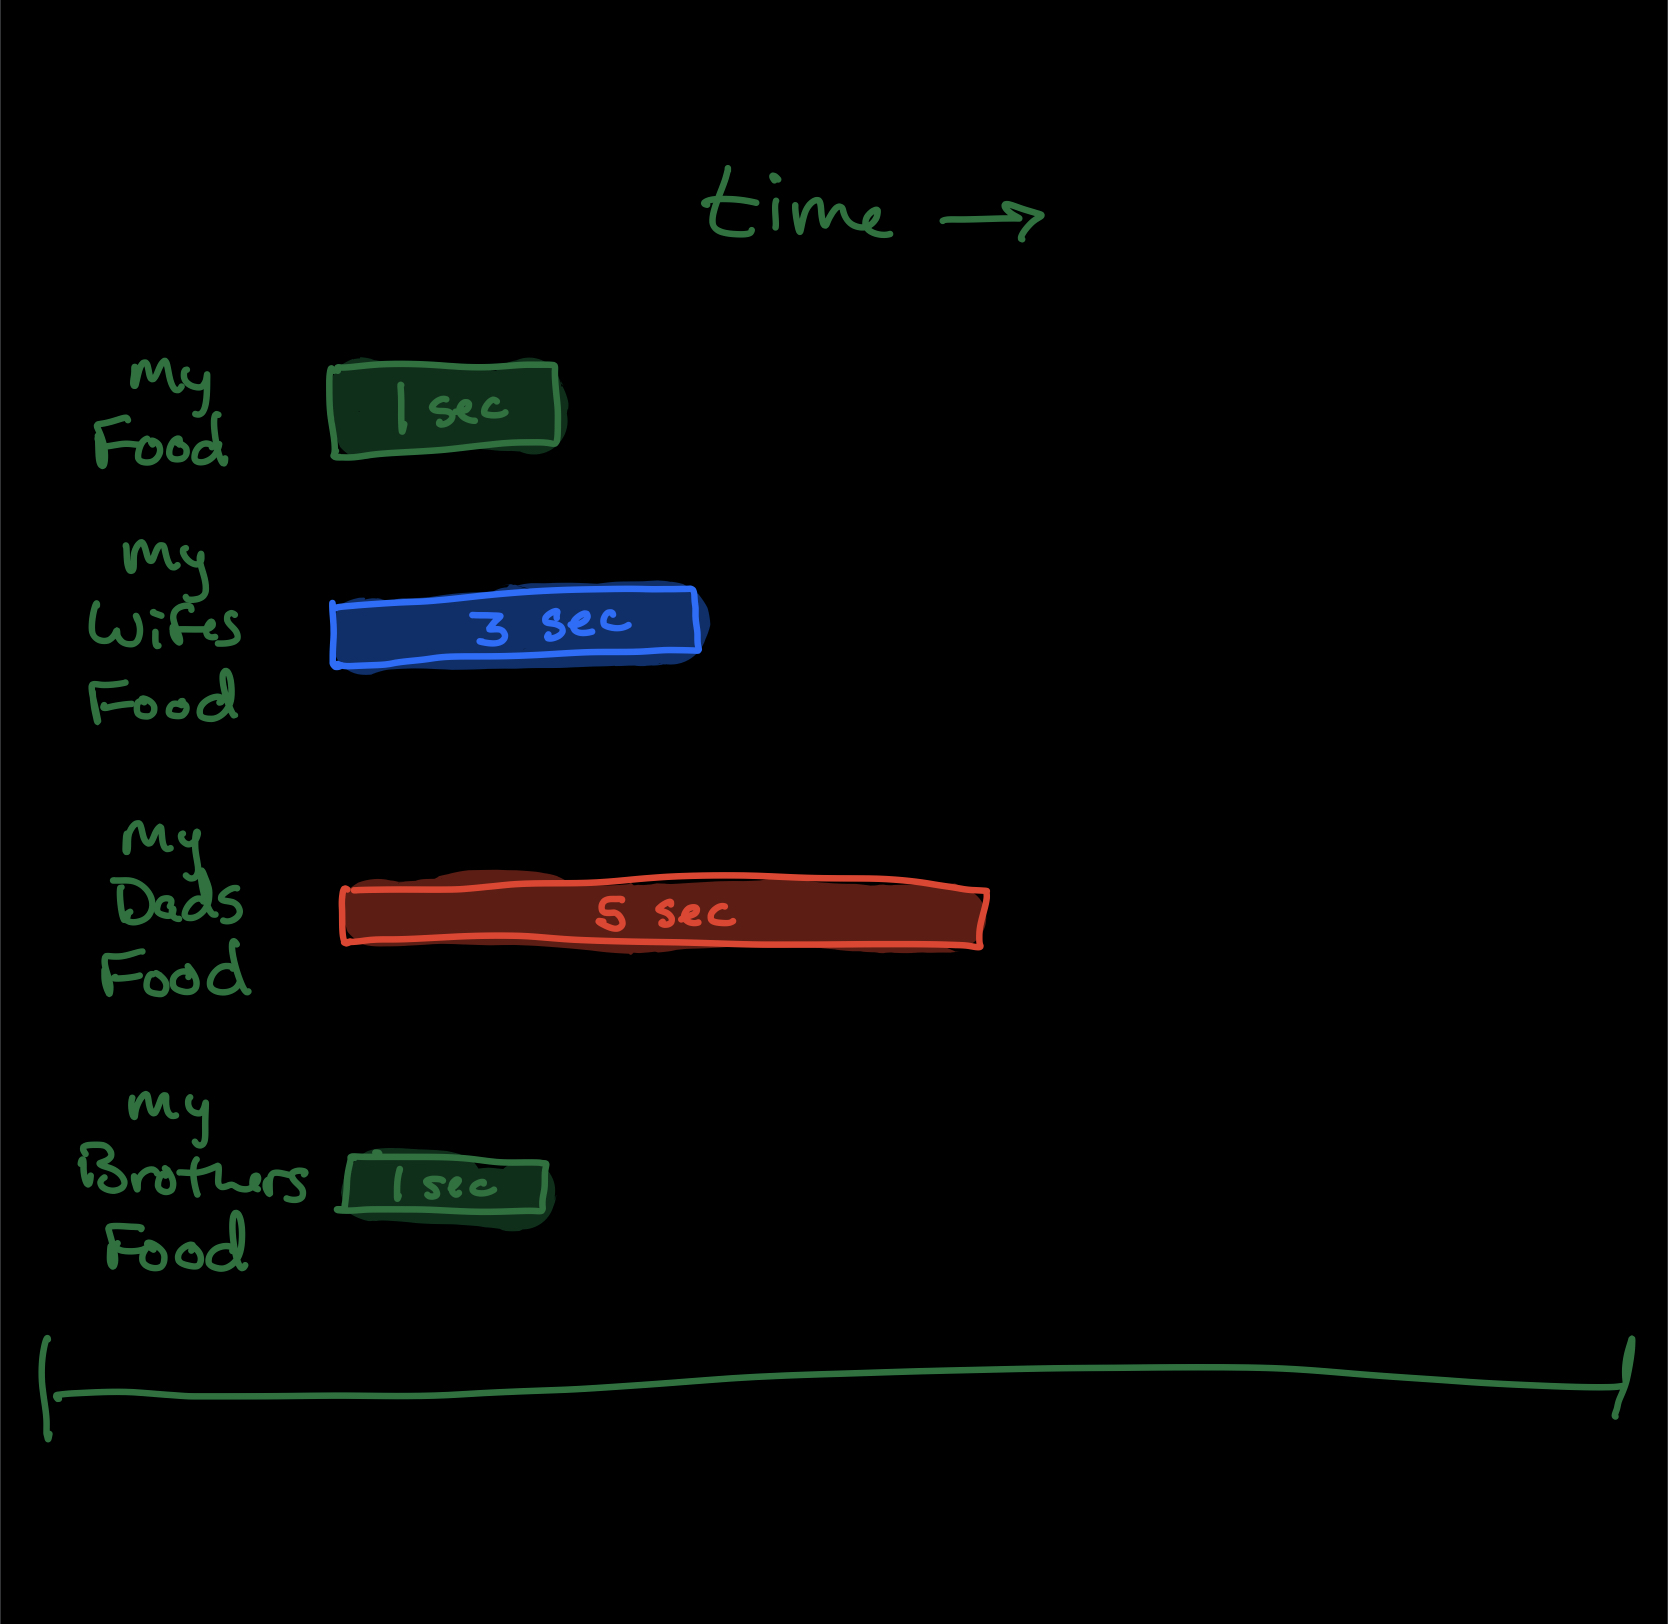 time →
my
Food
1 sec
my
Wifes
Food
3 sec
my
Dads
Food
5 sec
my
Brothers
Food
1 sec